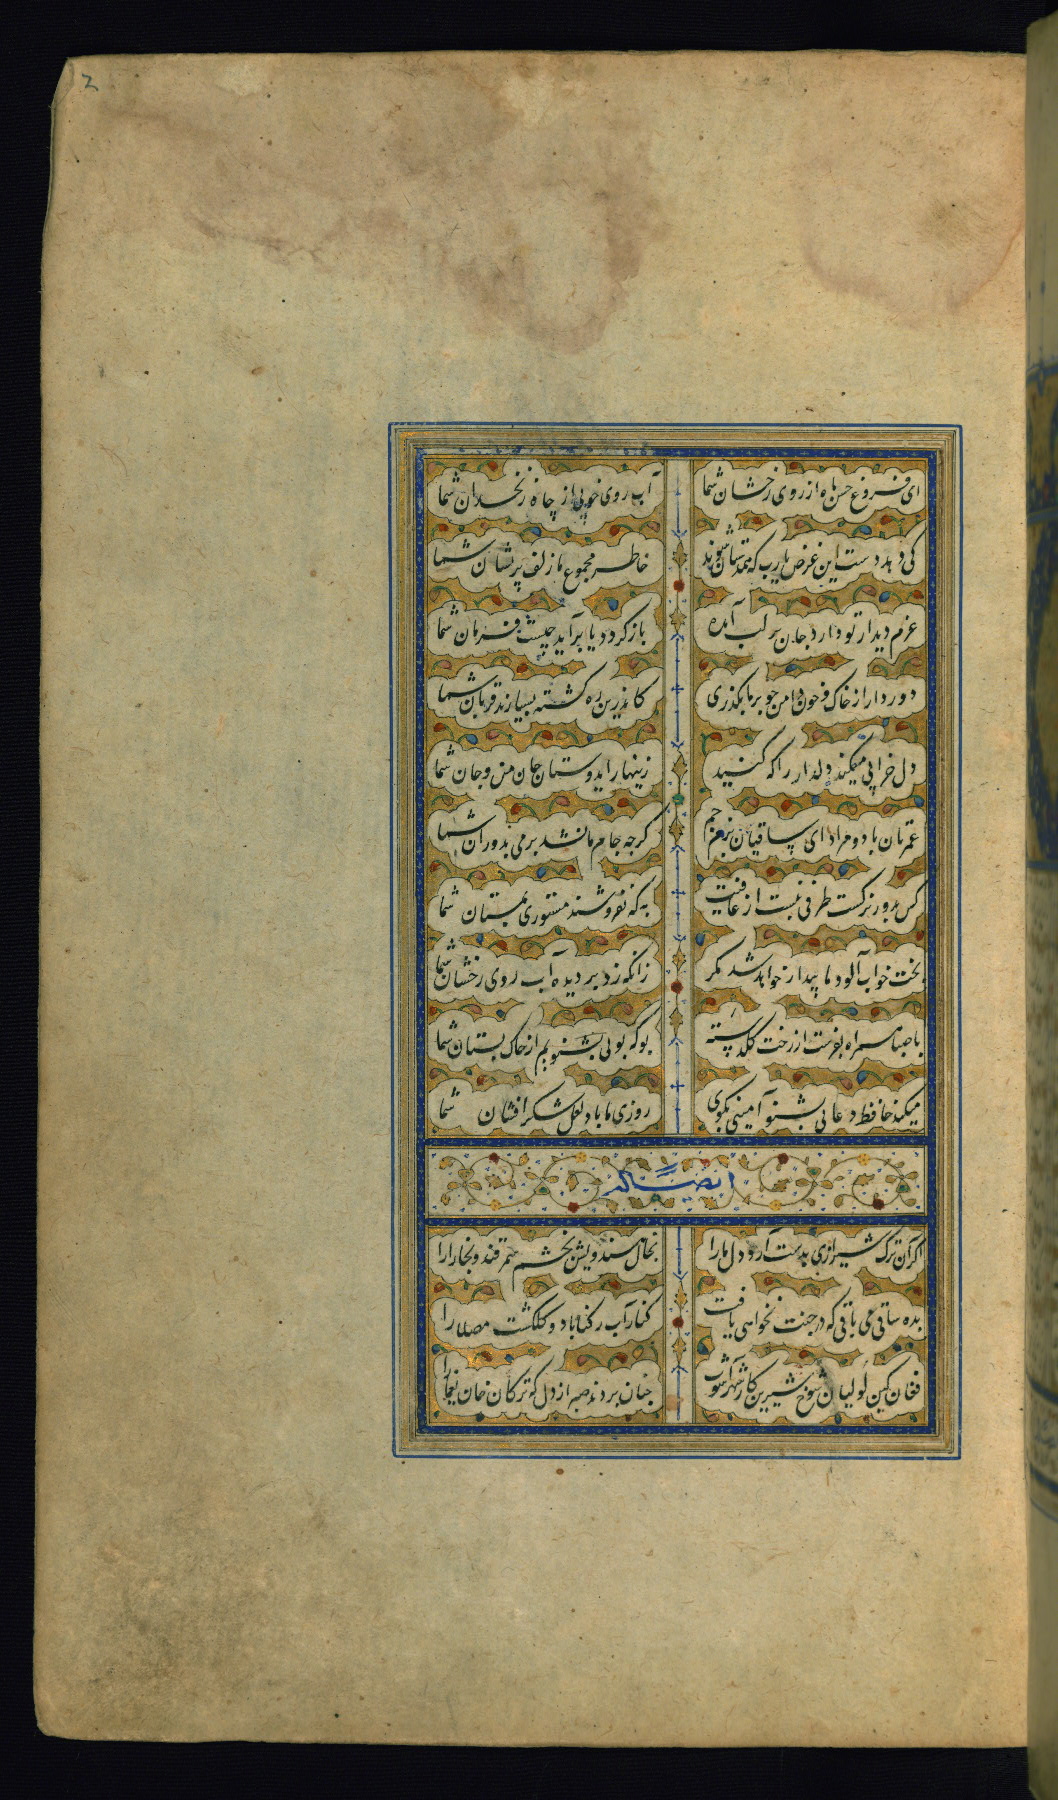 2
ای فروغ حسن ماه از روی رخشان شما آب روی خوبی از چاه زنخدان شما
کی دهد دست این غرض یا رب که همدستان شوند خاطر مجموع ما زلف پریشان شما
عزم دیدار تو دارد جان بر لب آمده باز گردد یا بر آید چیست فرمان شما
دور دار از خاک و خون دامن چو بر ما بگذری کاندرین ره کشته بسیارند قربان شما
دل خرابی میکند دلدار را آگه کنید زینهار ای دوستان جان من و جان شما
عمرتان باد و مراد ای ساقیان بزم جم گرچه جام ما نشد پر می بدوران شما
کس بدور نرگست طرفی نبست از عافیت به که نفروشند مستوری بمستان شما
بخت خواب آلود ما بیدار خواهد شد مگر زانکه زد بر دیده آب روی رخشان شما
با صبا همراه بفرست از رخت گلدسته بو که بوئی بشنویم از خاک بستان شما
میکند حافظ دعائی بشنو آمینی بگوی روزی ما باد لعل شکر افشان شما
ایضا له
اگر آن ترک شیرازی بدست آرد دل ما را بخال هندویش بخشم سمرقند و بخارا را
بده ساقی می باقی که در جنت نخواهی یافت کنار آب رکناباد و گلگشت مصلا را
فغان کین لولیان شوخ شیرین کار شهرآشوب چنان بردند صبر از دل که ترکان خوان یغما را